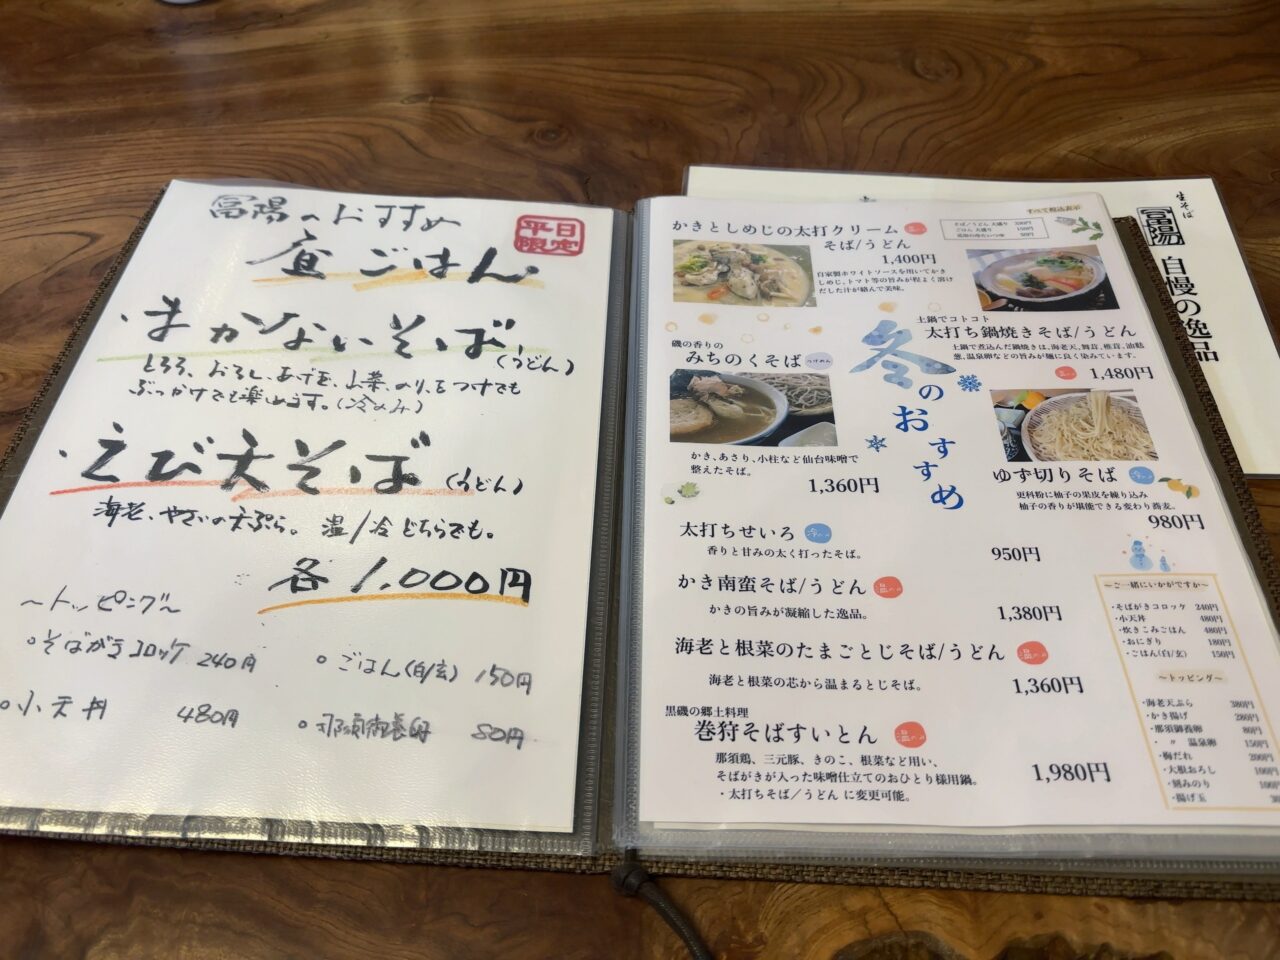 冨陽のおすすめ
昼ごはん
平日限定
・まかないそば(うどん)
とろろ、おろし、あげ玉、山菜、のり、をつけでも
ぶっかけでも楽しめます。(冷のみ)
・えび天そば(うどん)
海老、やさいの天ぷら。温/冷どちらでも。
各1,000円
〜トッピング〜
○そばがきコロッケ 240円
○ごはん(白/玄) 150円
○小天丼 480円
○那須御養卵 80円
すべて税込表示
かきとしめじの太打クリーム
そば/うどん
1,400円
自家製ホワイトソースを用いてかき
しめじ、トマト等の旨みが程よく溶け
だした汁が絡んで美味。
そば/うどん 大盛り
ごはん 大盛り
冬のおすすめ
土鍋でコトコト
太打ち鍋焼きそば/うどん
土鍋で煮込んだ鍋焼きは、海老天、舞茸、椎茸、油麩
葱、温泉卵などの旨みが麺に良く染みています。
1,480円
磯の香りの
みちのくそば
つけめん
かき、あさり、小柱など仙台味噌で
整えたそば。
1,360円
ゆず切りそば
更科粉に柚子の果皮を練り込み
柚子の香りが堪能できる変わり蕎麦。
980円
太打ちせいろ
香りと甘みの太く打ったそば。
950円
かき南蛮そば/うどん
かきの旨みが凝縮した逸品。
1,380円
海老と根菜のたまごとじそば/うどん
海老と根菜の芯から温まるとじそば。
1,360円
黒磯の郷土料理
巻狩そばすいとん
那須鶏、三元豚、きのこ、根菜など用い、
そばがきが入った味噌仕立てのおひとり様用鍋。
・太打ちそば/うどん に変更可能。
1,980円
〜ご一緒にいかがですか〜
・そばがきコロッケ 240円
・小天丼 480円
・炊きこみごはん 480円
・おにぎり 180円
・ごはん(白/玄) 150円
〜トッピング〜
・海老天ぷら 380円
・かき揚げ 280円
・那須御養卵 80円
・〃 温泉卵 150円
・梅だれ 200円
・大根おろし 100円
・刻みのり 100円
・揚げ玉
生そば
冨陽
自慢の逸品